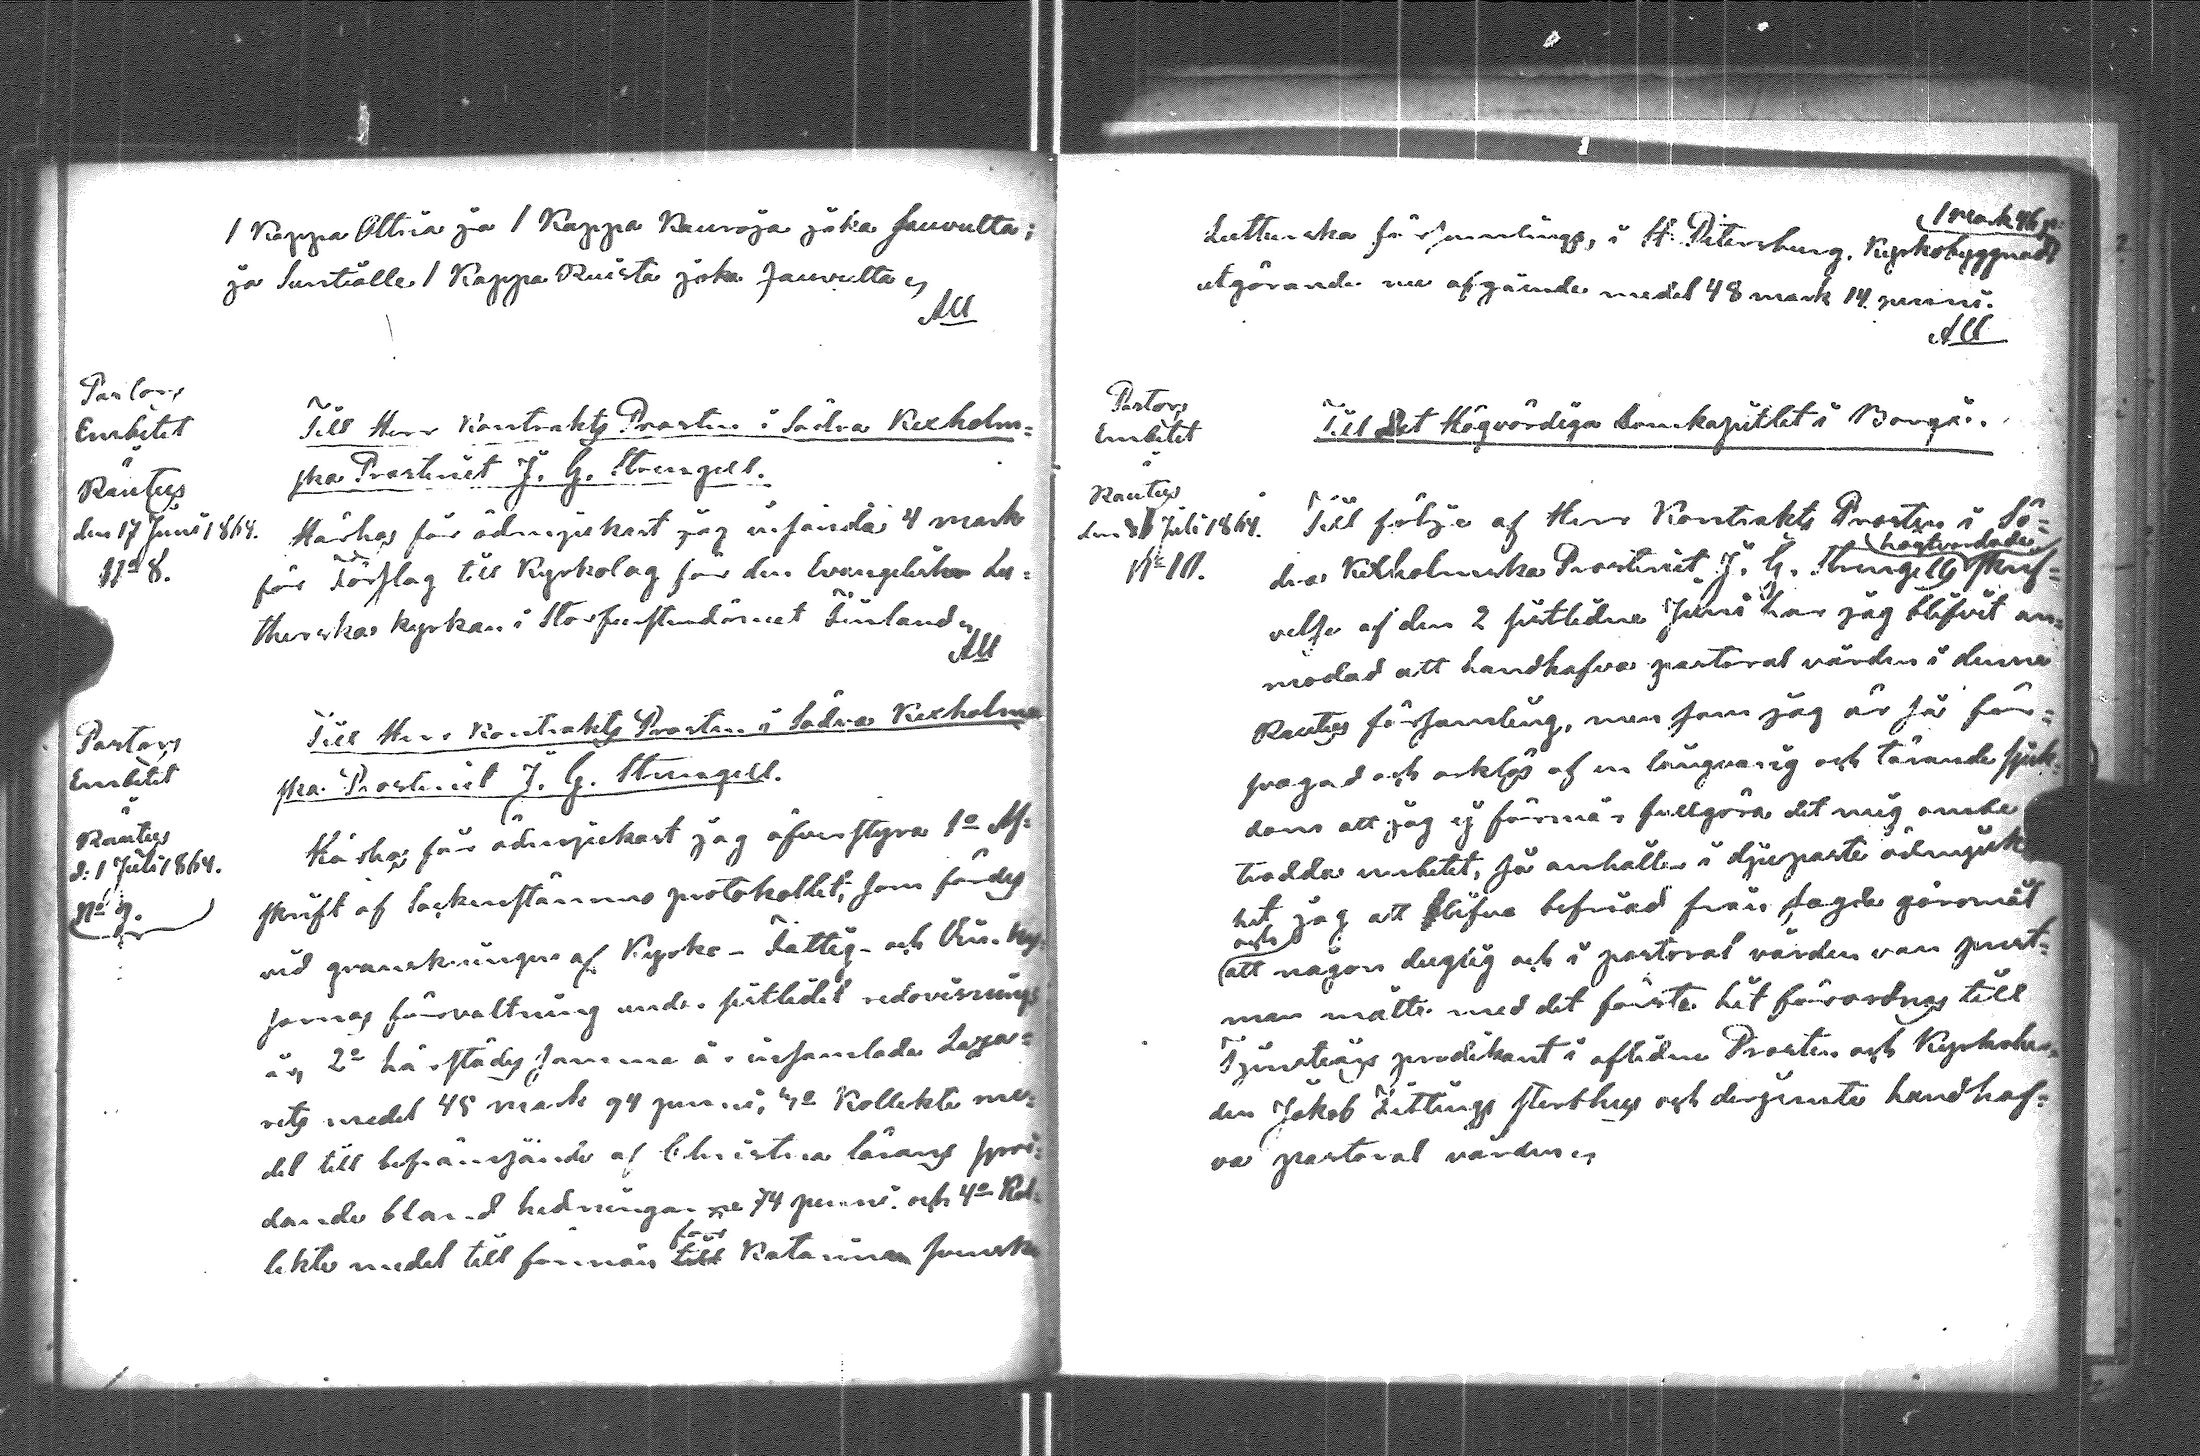 1 Kappa Ohria ja 1 Kappa Kauroja joka Jauvulta;
ja Suntiolle 1 Kappa Ruista joka Jauvulta
AU
Pastors
Embetet
i
Rautus
den 17 Juni 1864.
No 8.
Till Herr Kontrakts Prosten i Södra Kexholm=
ska Prosteriet J. G. Strengell.
Härhos får ödmjukast jag insända 4 mark
för Förslag till Kyrkolag för den Evangelisk Lu=
therska kyrkan i Storfurstendömet Finland
AU
Pastors
Embetet
i
Rautus
d: 1 Juli 1864.
No 9.
Till Herr Kontrakts Prosten i Södra Kexholm
ska Prosteriet J. G. Strengell.
Härhos får ödmjukast jag öfverstyra 1o Af=
skrift af Sockenstämmo protokollet, som fördes
vid granskningen af Kyrko- Fattig- och
försvaltning under sistlidet redovisnings
år, 2o härstädes samma år insamlade Lazar=
rets medel 45 mark 94 penni, 3o Kollekte me=
del till befrämjande af Christna lärans spri=
dande bland hedningarne 74 penni. och 4o Kol=
lekte medel till förmån för till Katarina Svenska
Lutherska församlings, i St Petersburg, Kyrkobyggnad 1 mark 46 p:
utgörande nu afgående medel 48 mark 14 penni.
AU
Pastors
Embetet
i
Rautus
Juli 1864.
No 10.
Till Det Högvördiga Domkapitlet i Borgå.
Till följe af Herr Kontrakts Prosten i Sö=
dra Kexholmska Prosteriet J. G. Strengells högtvördade skrif=
velse af den 2 sistlidne Juni har jag blifvit an=
modad att handhafva pastoral vården i denne
Rautus församling, men som jag är så för=
svagad och orklös af en långvarig och tärande sjuk=
dom att jag ej förmår fullgöra det mig ombe
trodda embetet, så anhåller i djupaste ödmjuk
het jag att blifva befriad från sagde göromål
och att någon duglig och i pastoral vården van prest=
man måtte med det första hit förordnas till
Tjensteårs predikant i aflidne Prosten och Kyrkoher=
den Jakob Fittings sterbhus och derjemte handhaf=
va pastoral vården